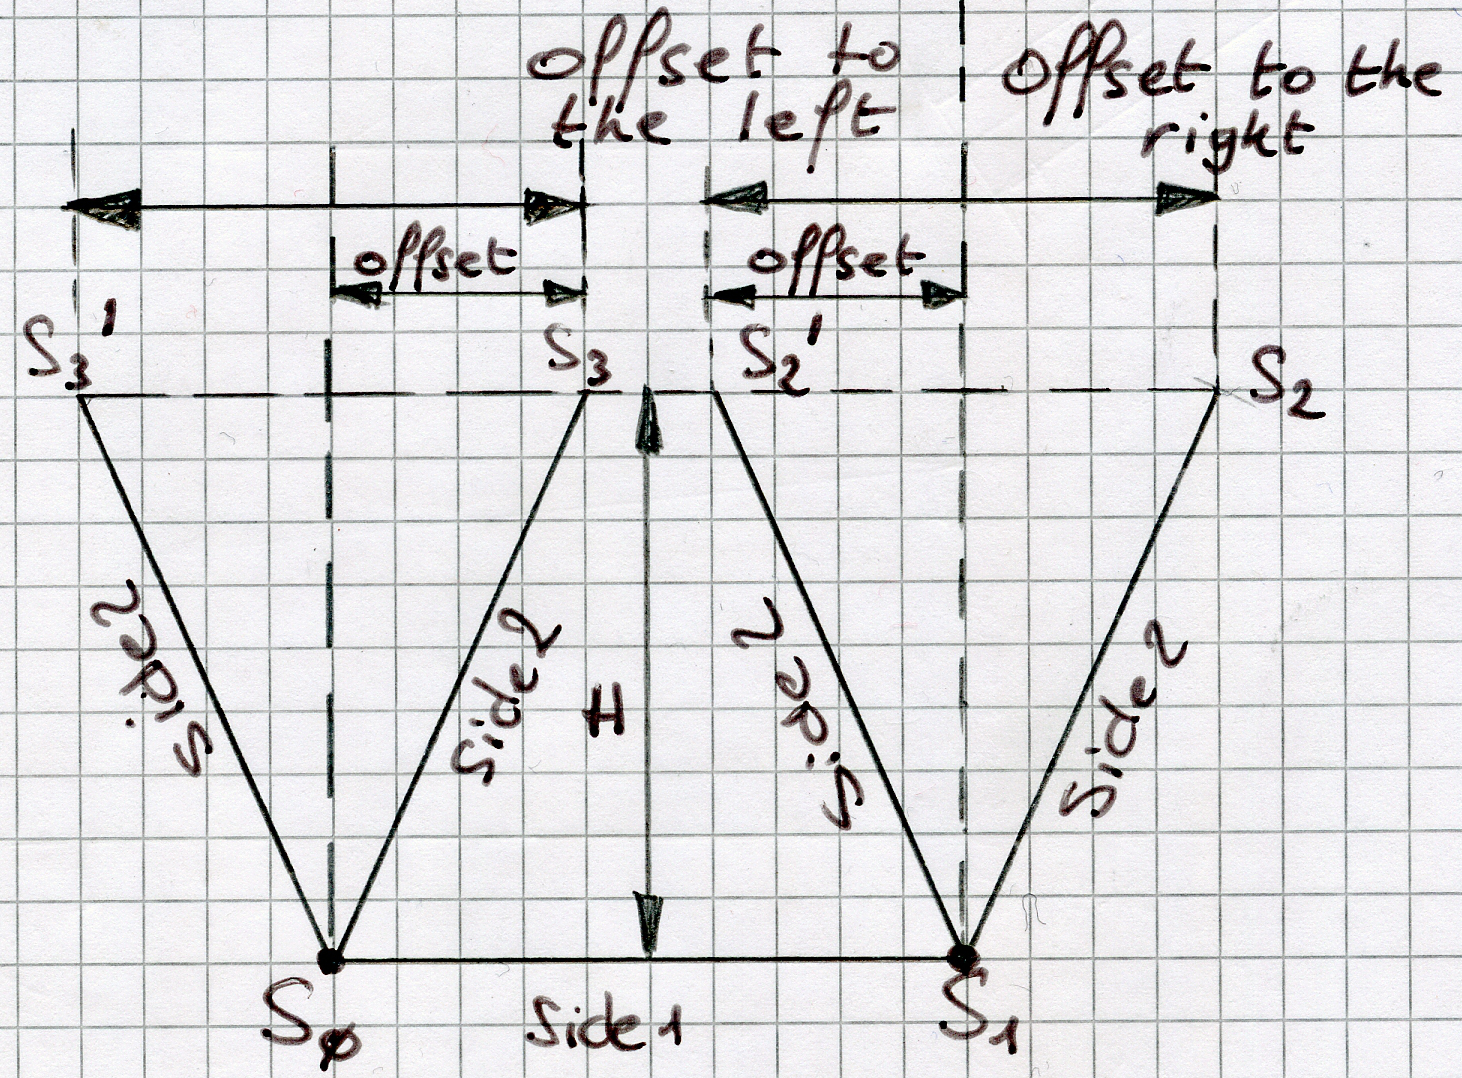 offset to
the left
offset to the
right
offset
offset
S3'
S3
S2'
S2
Side2
Side2
H
Side2
Side2
Sø
Side1
S1